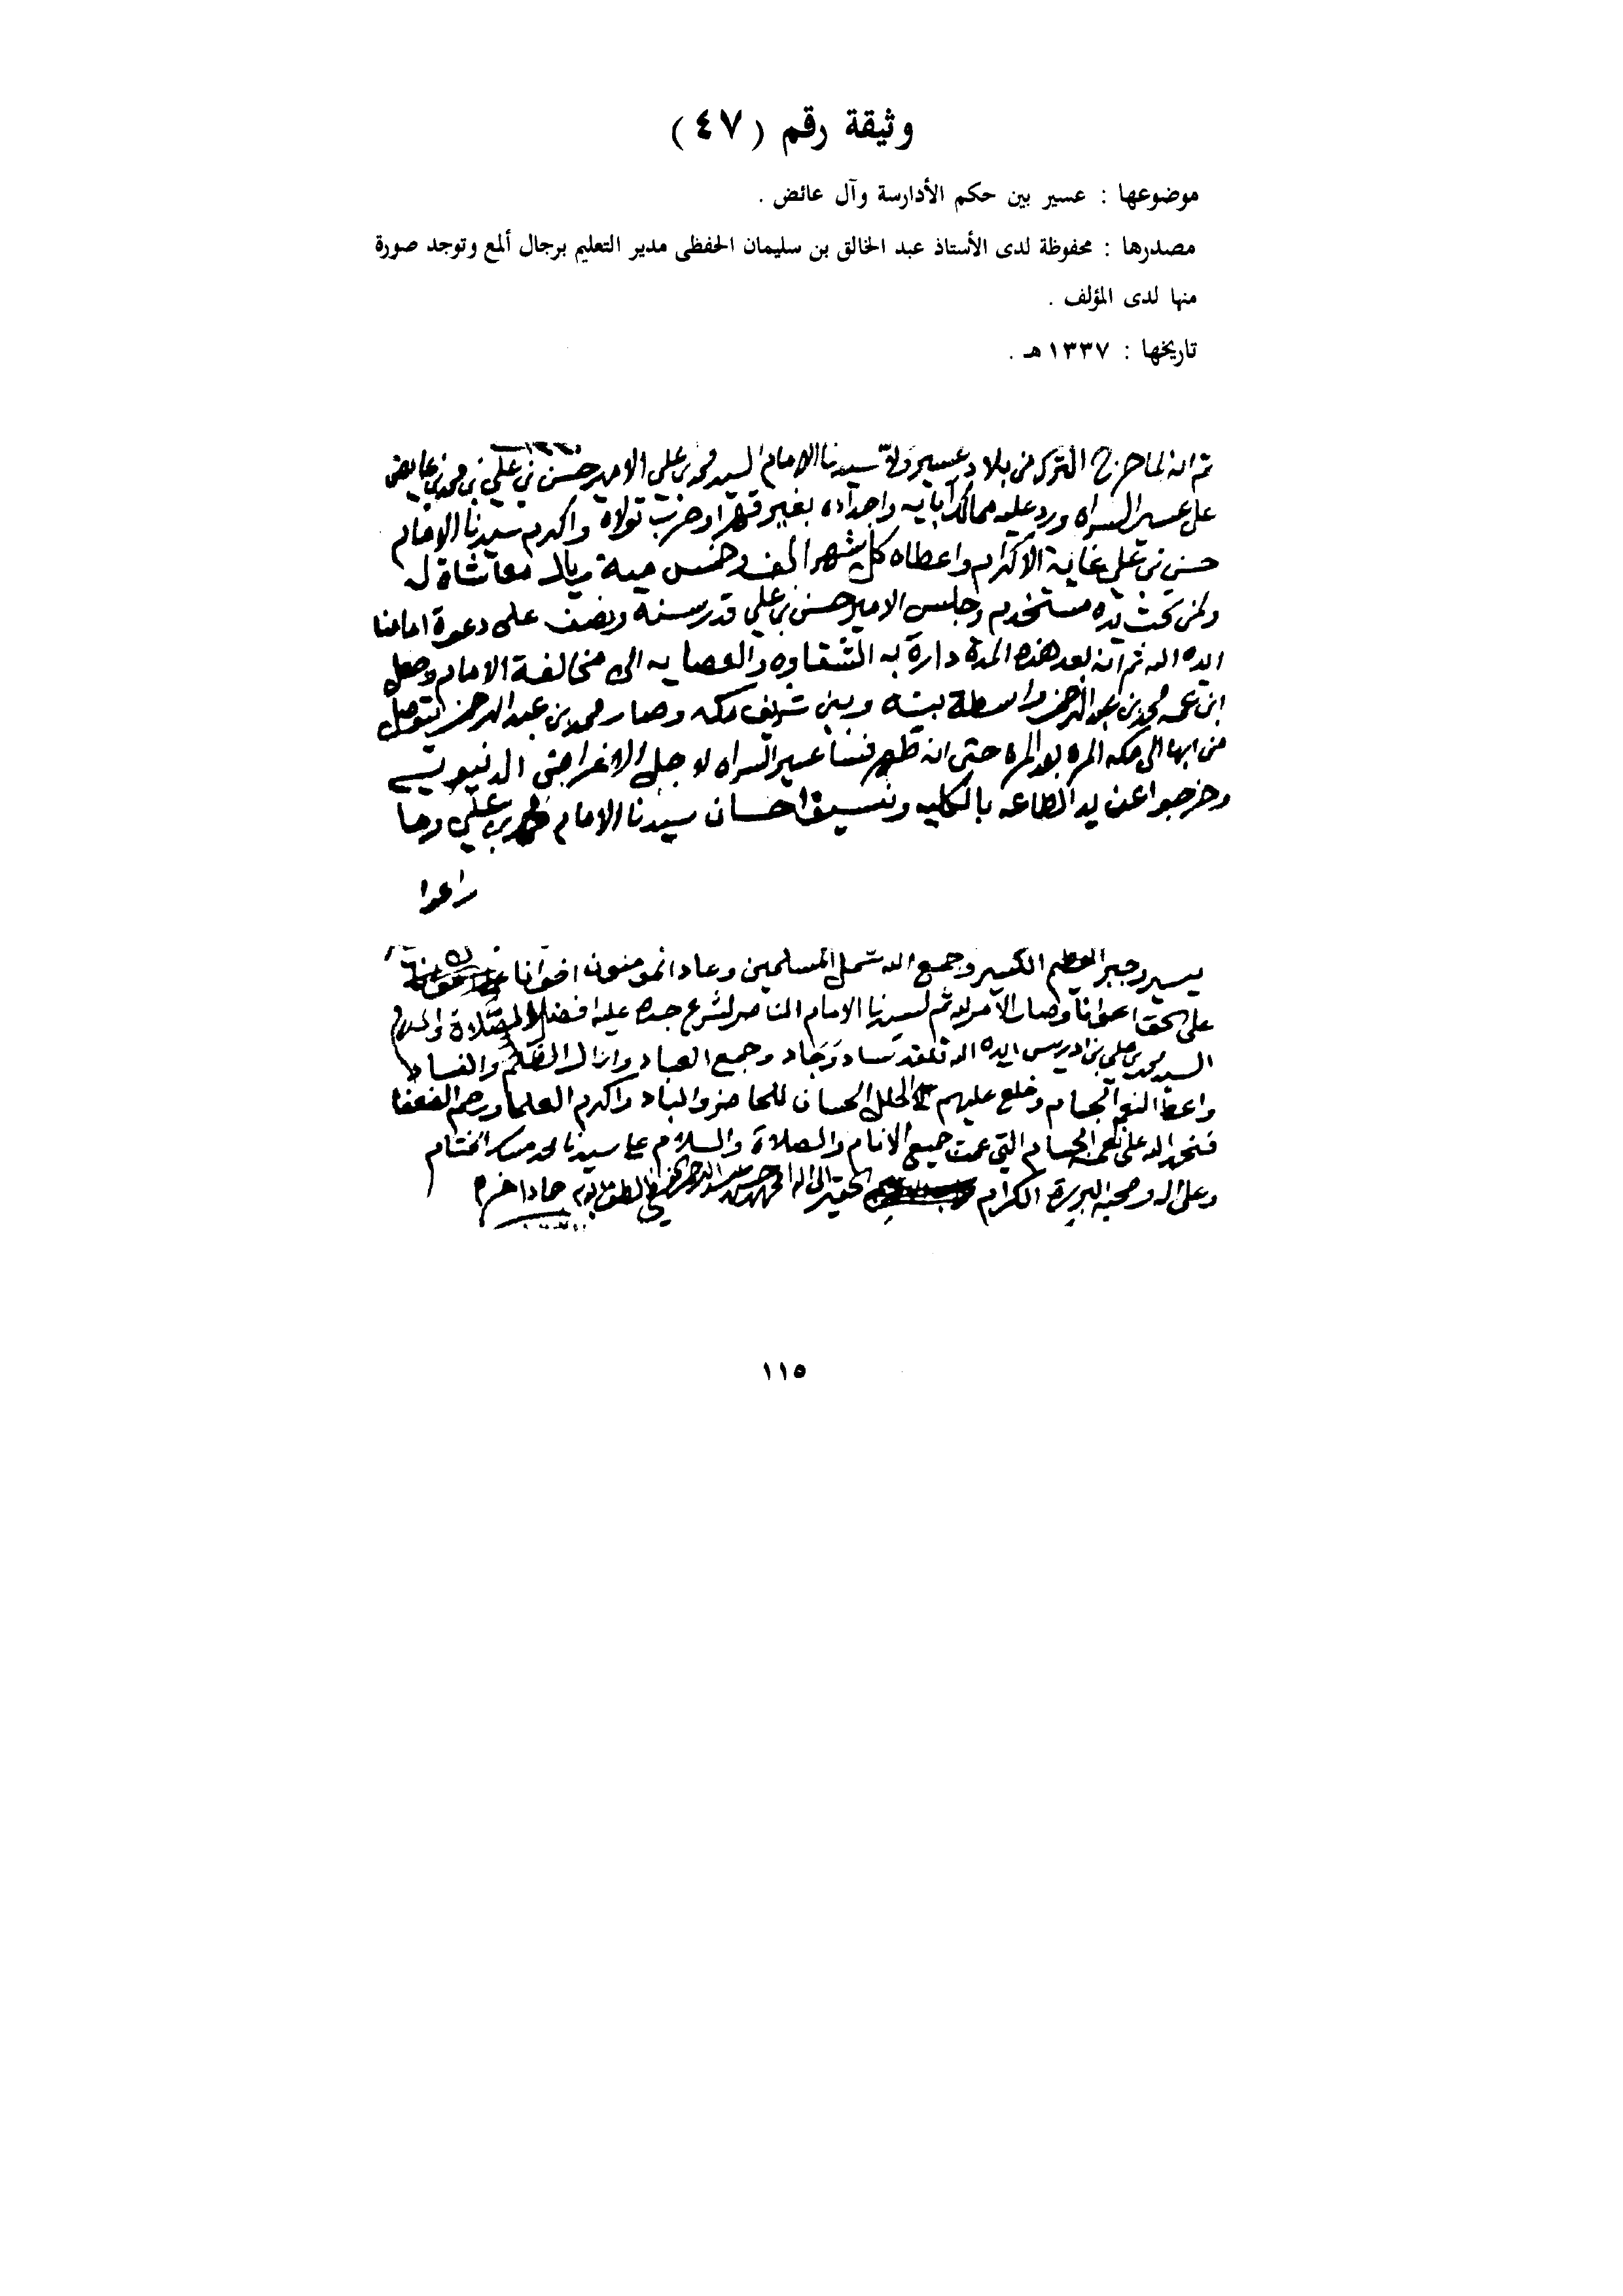 وثيقة رقم ( ٤٧ )
موضوعها : عسير بين حكم الأدارسة وآل عائض .
مصدرها : محفوظة لدى الأستاذ عبد الخالق بن سليمان الحفظى مدير التعليم برجال ألمع وتوجد صورة
منها لدى المؤلف .
تاريخها : ١٣٣٧ هـ .
ثم انه لما خرج الترك من بلاد عسير ولا سيدنا الامام السيد محمد بن علي الامير حسن بن علي بن محمد بن عايض
على عسير السراه ورد عليه ممالك آبايه واجداده بغير قهر او حرب تولاه واكرم سيدنا الامام
حسن بن علي غاية الاكرام واعطاه كل شهر الف وخمس مية ريال معاشاة له
ولمن تحت يده مستخدم وجلس الامير حسن بن علي قدر سنه ونصف على دعوة امامنا
ايده الله ثم ان بعد هذه المدة دارة به الشقاوه والعصايه الى مخالفة الامام وجعل
ابن عمه محمد بن عبد الرحمن واسطة بينه وبين شريف مكه وصار محمد بن عبد الرحمن يتوصل
من ابها الى مكه المره بعد المره حتى ان ظهر فتنة عسير السراه لاجل الاغراض الدنيويه
وخرجوا عن يد الطاعه بالكليه ونسيو احسان سيدنا الامام محمد بن علي وما
راعوا
يسير وجبر العظم الكسير وجمع الله شمل المسلمين وعاد المومنون اخوانا
على الحق اعوانا وصار الامر لله ثم لسيدنا الامام الناصر لشرع جده عليه افضل الصلاة والسلام
السيد محمد بن علي بن ادريس ايده الله فلقد ساد وجاد وجمع العباد وازال الظلم والفساد
واعطا النعم الجسام وخلع عليهم الحلل الحسان للحاضر والباد واكرم العلما ورحم الضعفا
فنحمد الله على نعمه الجسام التي عمت جميع الانام والصلاة والسلام على سيدنا محمد مسك الختام
وعلى اله وصحبه البررة الكرام الحقير الى الله
١١٥